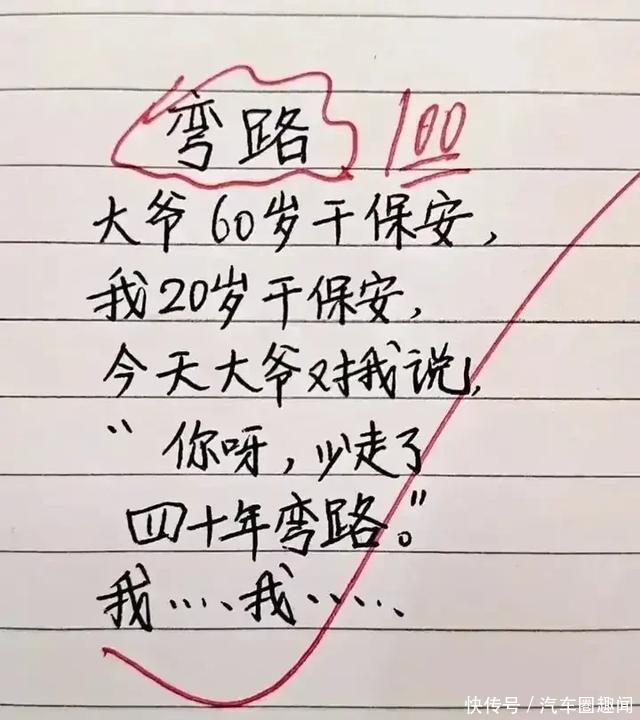 弯路
100
大爷60岁干保安，
我20岁干保安，
今天大爷对我说，
“你呀，少走了
四十年弯路。”
我……我……
快传号／汽车圈趣闻